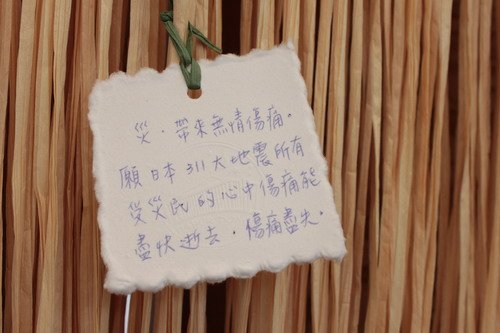 災，帶來無情傷痛。
願日本311大地震所有
受災民的心中傷痛能
盡快逝去，傷痛盡失。